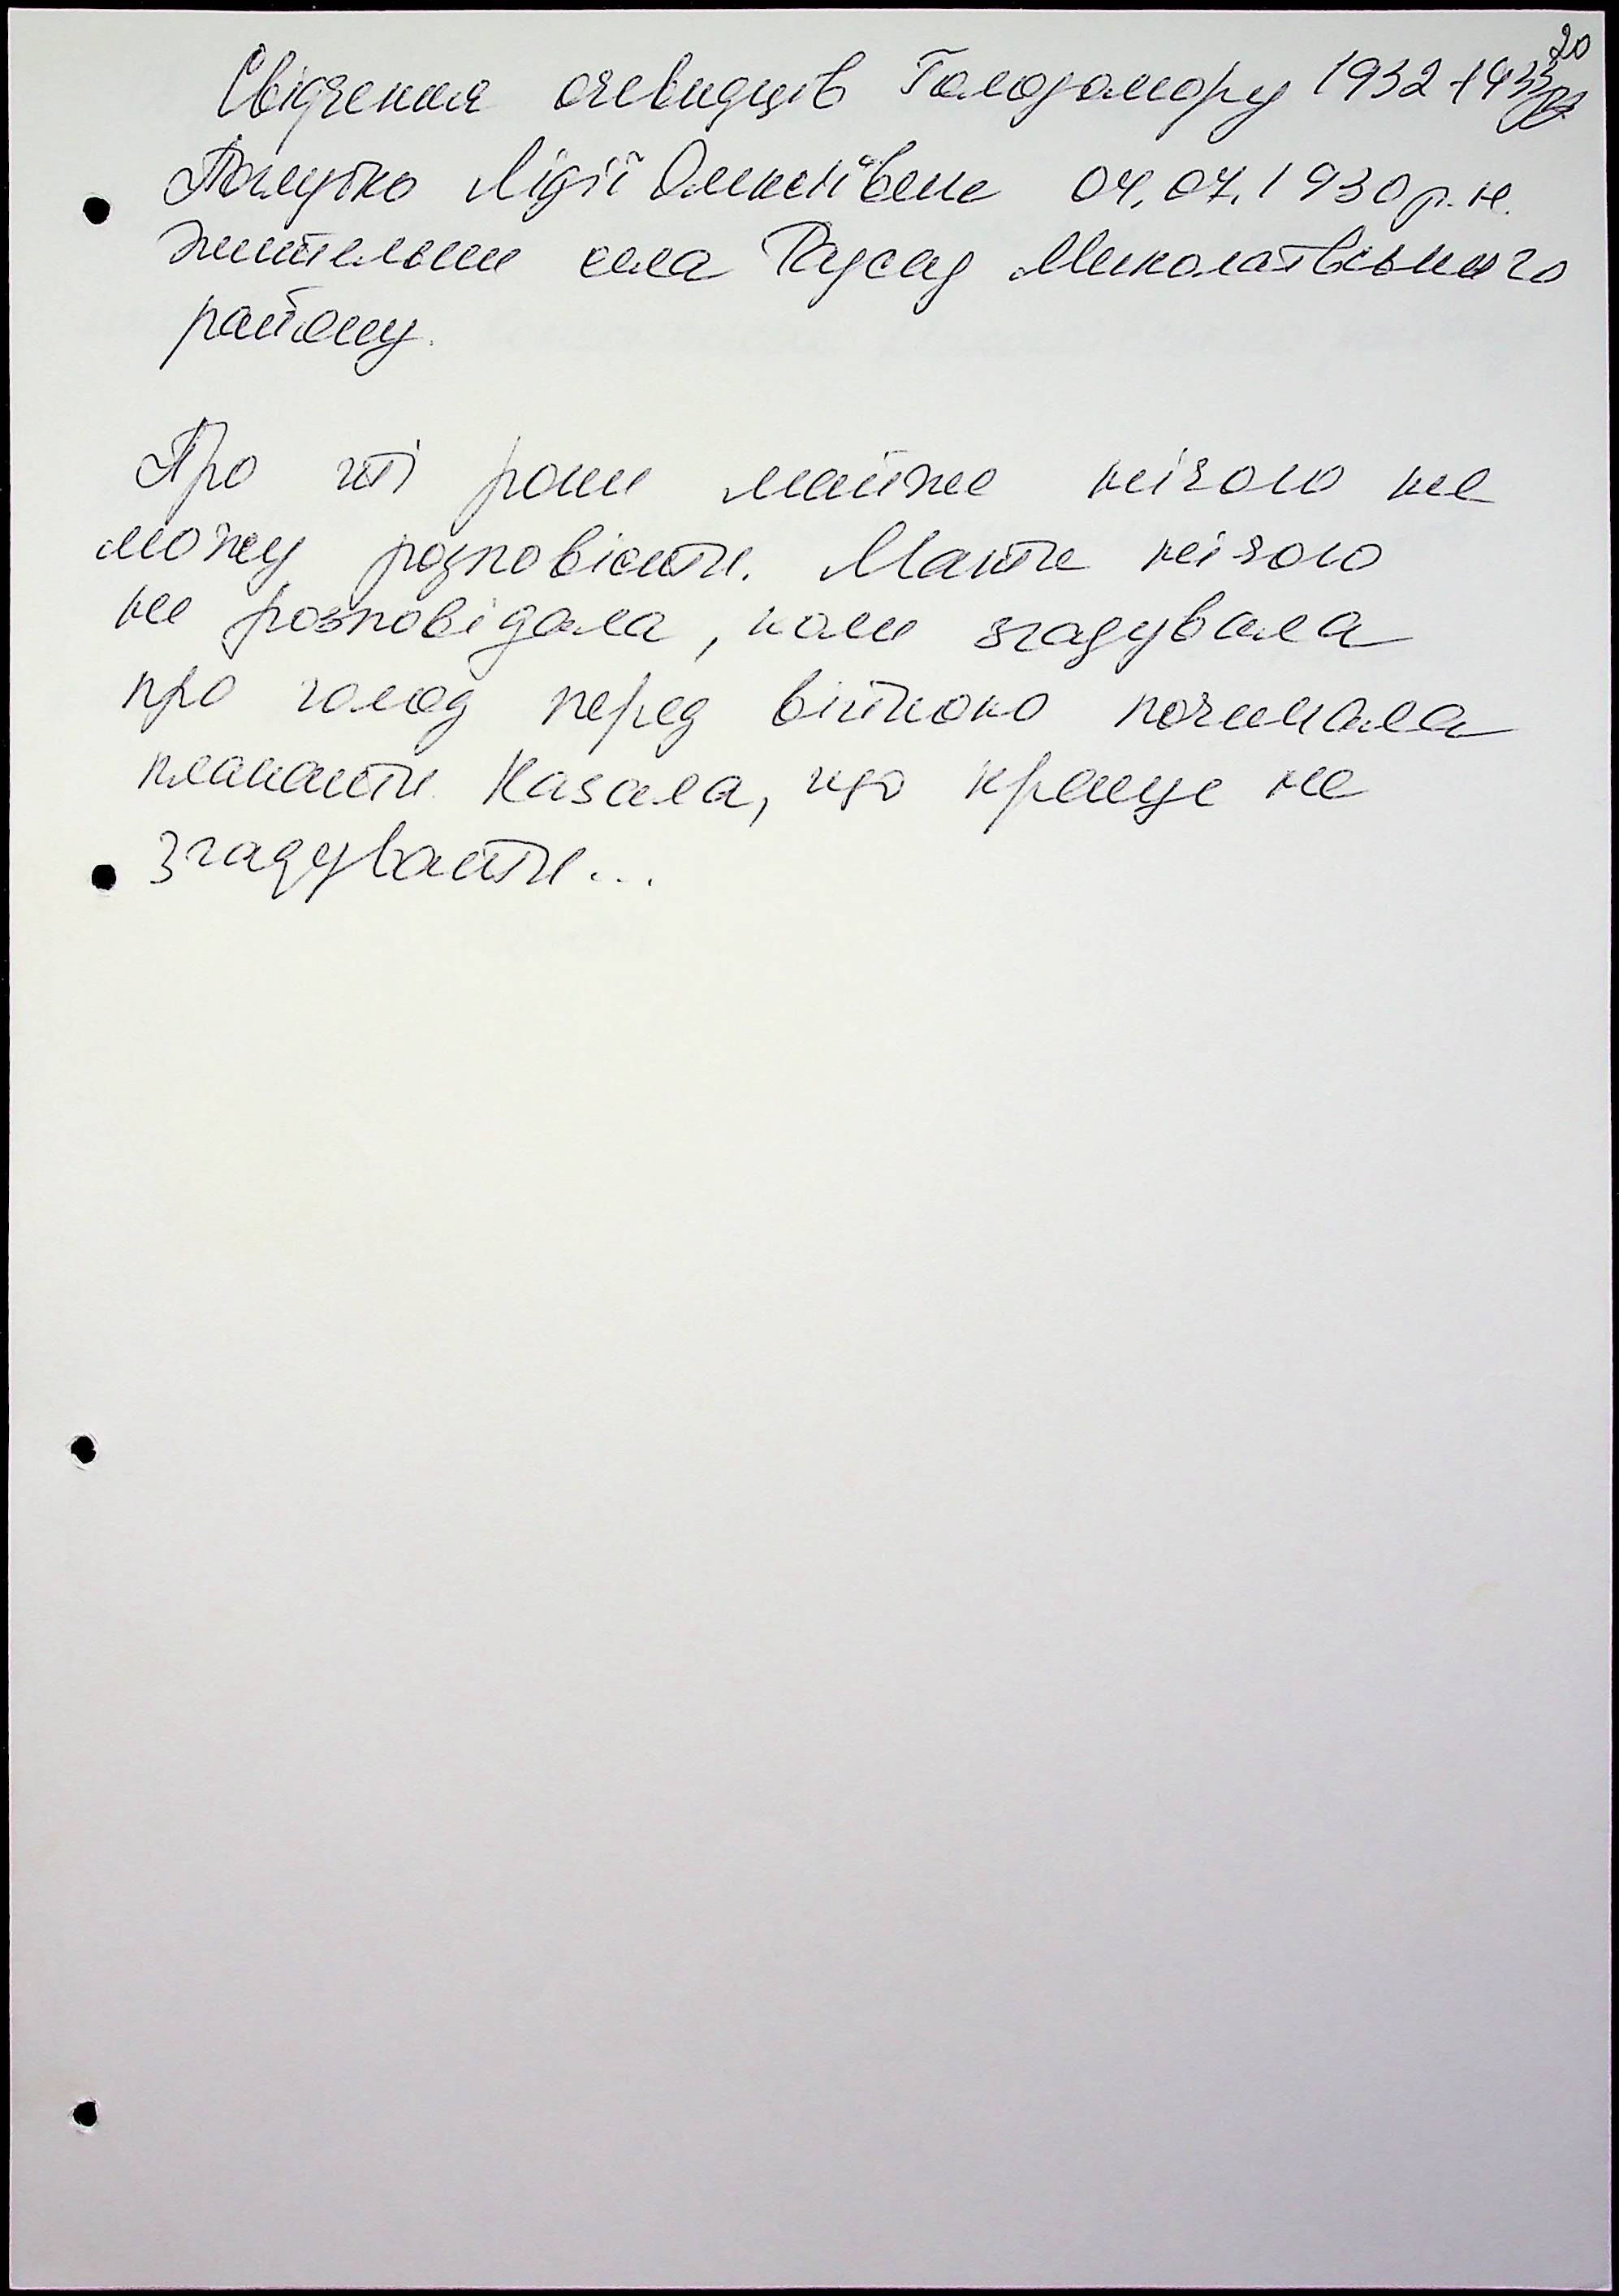 20
Свідчення очевидців Голодомору 1932-1933рр
Лідії Олексіївни 04.07.1930 р.н.
жительки села Радсад Миколаївського
району.
Про ті роки майже нічого не
можу розповісти. Мати нічого
не розповідала, коли згадувала
про голод перед війною починала
плакати. Казала, що краще не
згадувати...